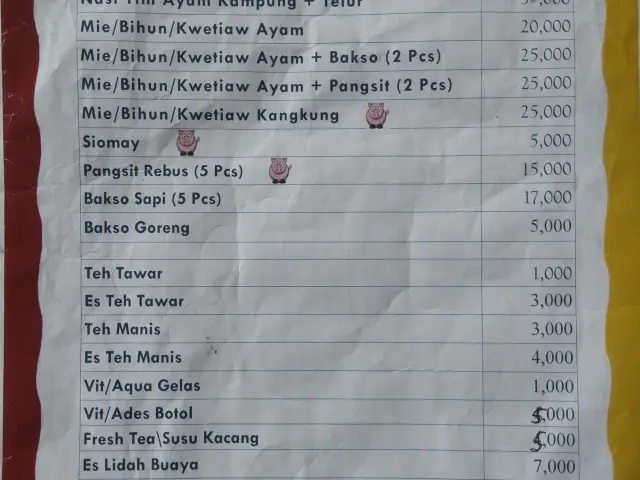 Nasi Tim Ayam Kampung + Telur
Mie/Bihun/Kwetiaw Ayam 20,000
Mie/Bihun/Kwetiaw Ayam + Bakso (2 Pcs) 25,000
Mie/Bihun/Kwetiaw Ayam + Pangsit (2 Pcs) 25,000
Mie/Bihun/Kwetiaw Kangkung 25,000
Siomay 5,000
Pangsit Rebus (5 Pcs) 15,000
Bakso Sapi (5 Pcs) 17,000
Bakso Goreng 5,000
Teh Tawar 1,000
Es Teh Tawar 3,000
Teh Manis 3,000
Es Teh Manis 4,000
Vit/Aqua Gelas 1,000
Vit/Ades Botol 5,000
Fresh Tea\Susu Kacang 5,000
Es Lidah Buaya 7,000